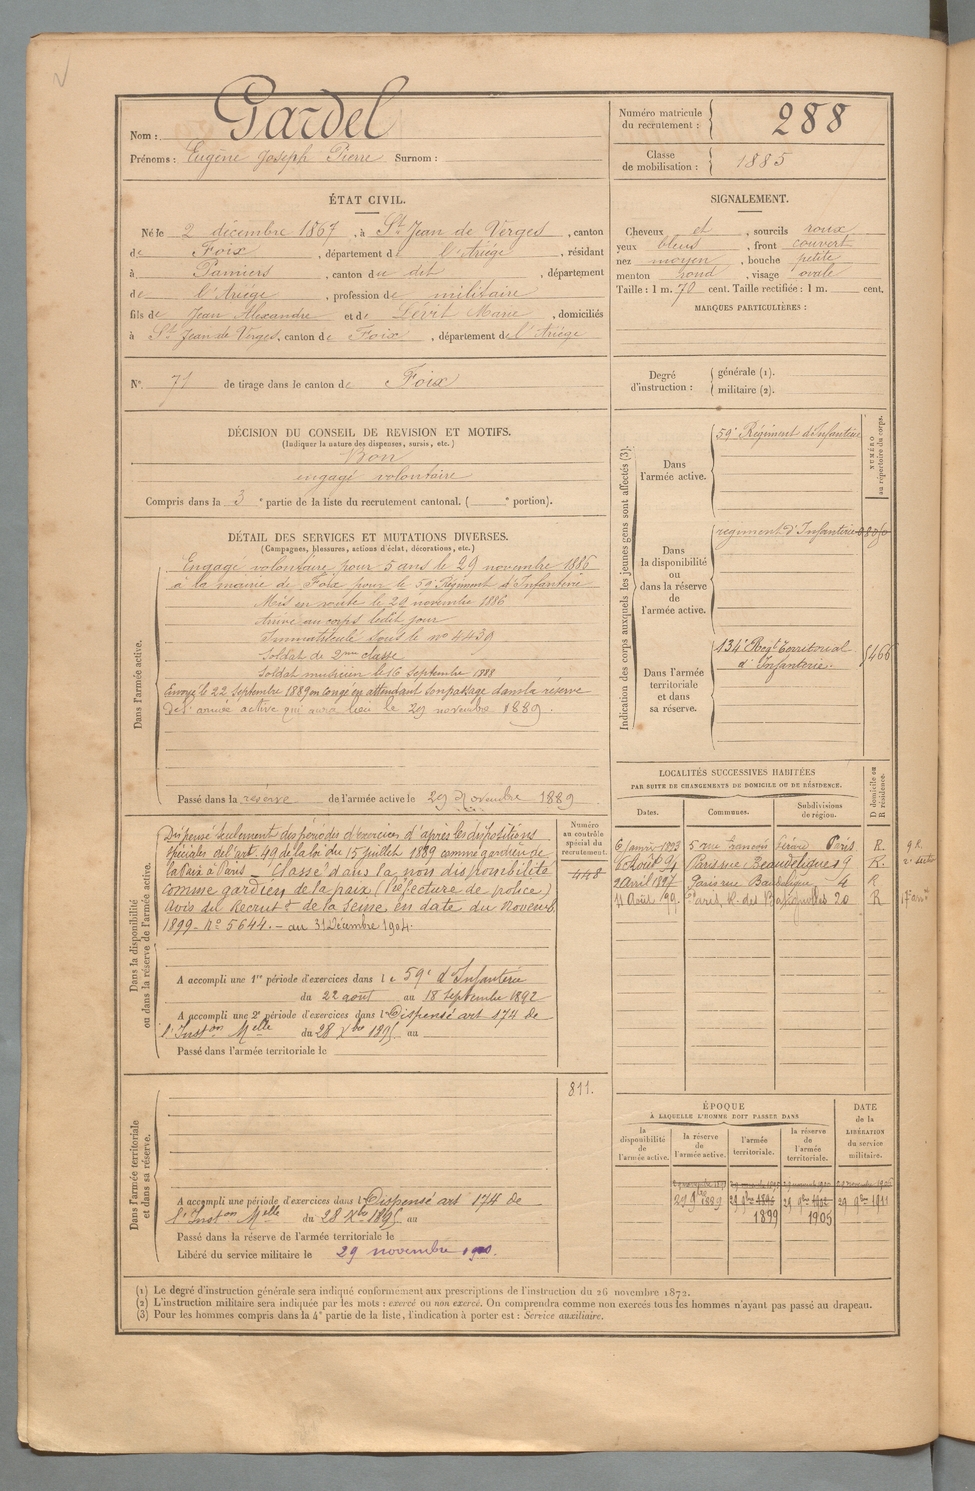 Nom : Gardel
Prénoms : Eugène Joseph Pierre Surnom :
Numéro matricule du recrutement : 288
Classe de mobilisation : 1885
ÉTAT CIVIL.
Né le 2 décembre 1867, à St Jean de Verges, canton
de Foix, département de l'Ariège, résidant
à Pamiers, canton du dit, département
de l'Ariège, profession de militaire
fils de Jean Alexandre et de Marie, domiciliés
à St Jean de Verges, canton de Foix, département de l'Ariège
N° 71 de tirage dans le canton de Foix
SIGNALEMENT.
Cheveux et, sourcils roux
yeux bleus, front couvert
nez moyen, bouche petite
menton rond, visage ovale
Taille : 1 m. 70 cent. Taille rectifiée : 1 m. cent.
MARQUES PARTICULIÈRES :
Degré d'instruction : générale (1).
militaire (2).
DÉCISION DU CONSEIL DE REVISION ET MOTIFS.
(Indiquer la nature des dispenses, sursis, etc.)
Bon
engagé volontaire
Compris dans la 3e partie de la liste du recrutement cantonal. ( e portion).
DÉTAIL DES SERVICES ET MUTATIONS DIVERSES.
(Campagnes, blessures, actions d'éclat, décorations, etc.)
Dans l'armée active.
Engagé volontaire pour 5 ans le 29 novembre 1886
à la mairie de Foix pour le 59e Régiment d'Infanterie
Mis en route le 29 novembre 1886
Arrivé au corps ledit jour
Immatriculé sous le no 4439
Soldat de 2me classe
Soldat musicien le 16 Septembre 1888
Envoyé le 22 Septembre 1889 en congé en attendant son passage dans la réserve
de l'armée active qui aura lieu le 29 novembre 1889.
Passé dans la réserve de l'armée active le 29 Novembre 1889
Dans la disponibilité ou dans la réserve de l'armée active.
Numéro au contrôle spécial du recrutement.
448
Dispensé seulement des périodes d'exercices d'après les dispositions
spéciales de l'art. 49 de la loi du 15 juillet 1889 comme gardien de
la Paix à Paris – Classé dans la non disponibilité
comme gardien de la paix (Préfecture de police)
Avis du Recrutt de la Seine en date du Novemb.
1899 - No 5644. - au 31 Décembre 1904.
A accompli une 1re période d'exercices dans le 59e d'Infanterie
du 22 août au 18 Septembre 1892
A accompli une 2e période d'exercices dans l Dispensé art 174 de
l'Inston Melle du 28 Xbre 1895 au
Passé dans l'armée territoriale le
Dans l'armée territoriale et dans sa réserve.
811.
A accompli une période d'exercices dans l Dispensé art 174 de
l'Inston Melle du 28 Xbre 1895 au
Passé dans la réserve de l'armée territoriale le
Libéré du service militaire le 29 novembre
Indication des corps auxquels les jeunes gens sont affectés (3).
NUMÉRO au répertoire du corps.
Dans l'armée active.
59e Régiment d'Infanterie
Dans la disponibilité ou dans la réserve de l'armée active.
régiment d'Infanterie
Dans l'armée territoriale et dans sa réserve.
134e Regt Territorial
d'Infanterie. 5466
LOCALITÉS SUCCESSIVES HABITÉES
PAR SUITE DE CHANGEMENTS DE DOMICILE OU DE RÉSIDENCE.
D domicile ou R résidence.
Dates. Communes. Subdivisions de région.
6 Janvr 1893 5 rue Paris R. 9 R.
Août 94 Paris rue Beaudelique 19 R. 2e
2 Avril 1897 Paris rue Baudelique 4 R
11 Août 99. Paris, R. des Batignolles 20 R
ÉPOQUE
À LAQUELLE L'HOMME DOIT PASSER DANS
DATE de la LIBÉRATION du service militaire.
la disponibilité de l'armée active.
la réserve de l'armée active.
l'armée territoriale.
la réserve de l'armée territoriale.
29 9bre 1889 29 9bre 1896 29 9bre 29 9bre 1911
1899 1905
(1) Le degré d'instruction générale sera indiqué conformément aux prescriptions de l'instruction du 26 novembre 1872.
(2) L'instruction militaire sera indiquée par les mots : exercé ou non exercé. On comprendra comme non exercés tous les hommes n'ayant pas passé au drapeau.
(3) Pour les hommes compris dans la 4e partie de la liste, l'indication à porter est : Service auxiliaire.